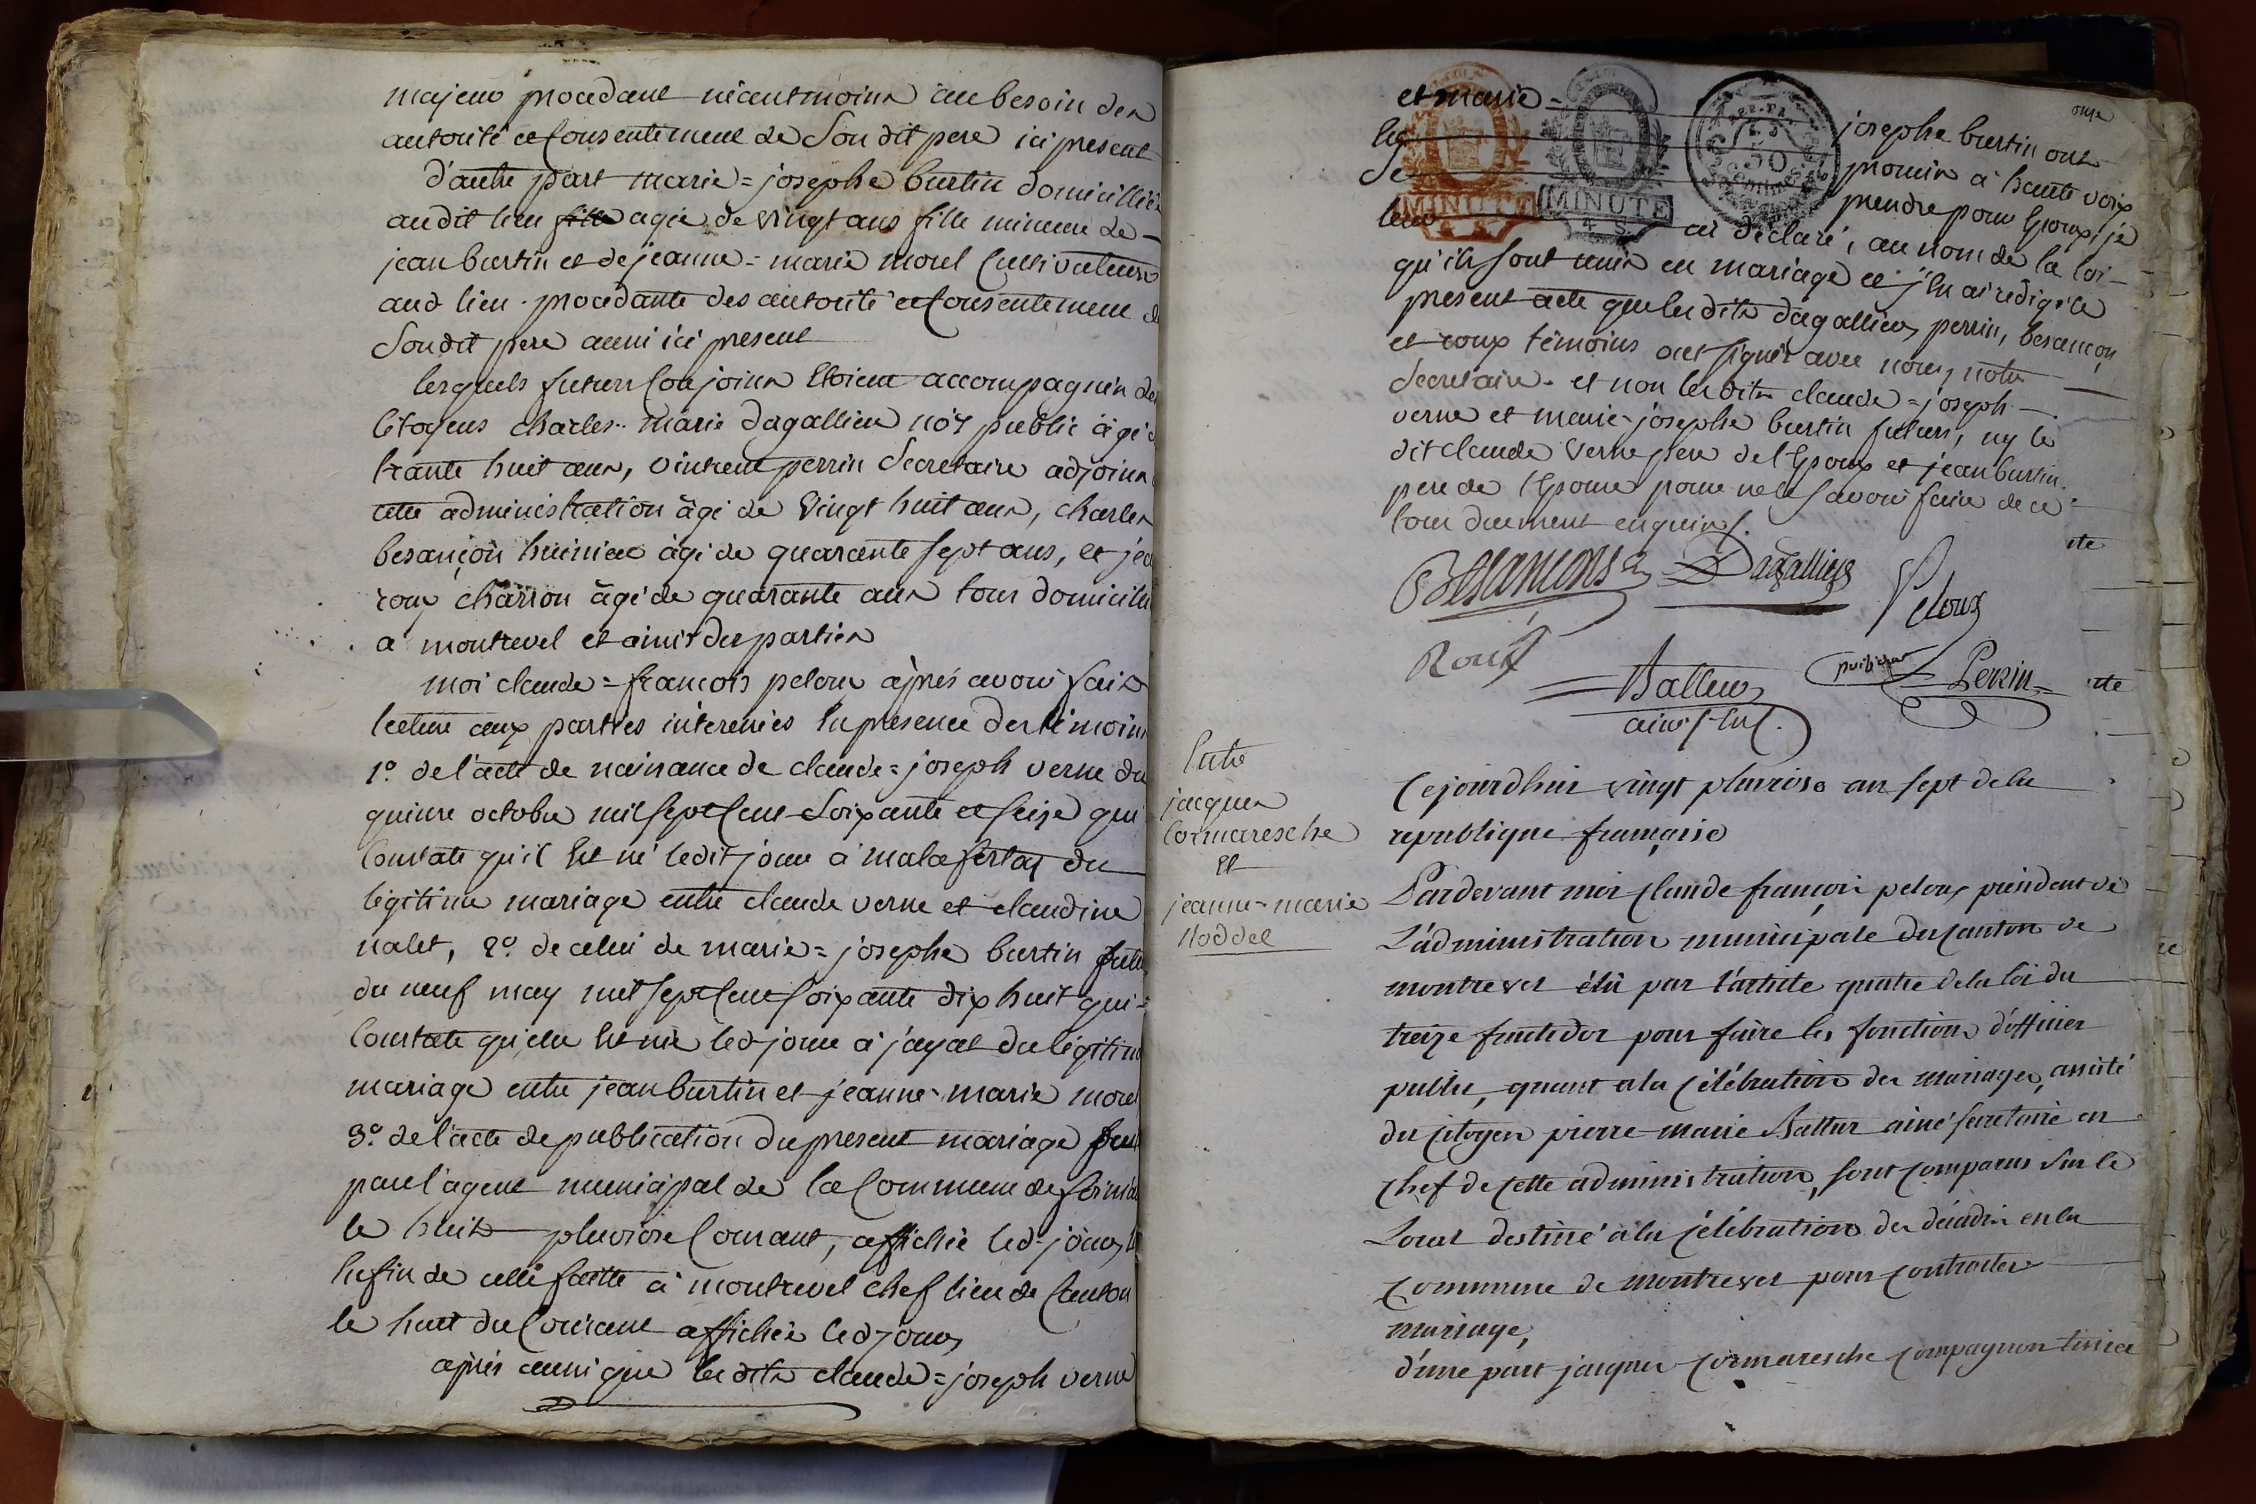 majeur procedant neantmoins au besoin des
autorité et consentement de Son dit pere ici present
d'autre part marie = josephe burtin domiciliée
audit lieu agée de vingt ans fille mineure de
jean burtin et de jeanne = marie morel Cultivateurs
aud lieu procedante des autorité et Consentement de
Sondit pere aussi ici present
lesquels futurs Conjoins Etoient accompagnés des
Citoyens charles = marie dagallier no.re public âgé de
trante huit ans, vincent perrin Secretaire adjoins
cette administration âgé de Vingt huit ans, charles
besançon huissier âgé de quarante sept ans, et jean
roux charron âgé de quarante ans tous domiciliés
a montrevel et amis des parties
moi claude = françois peloux après avoir fait
lecture aux parties interessées En presence des témoins
1.° de l'acte de naissance de claude = joseph verne du
quinze octobre mil Sept Cent Soixante et Seize qui
Constate qu'il Est né ledit jour a malafretaz du
légitime mariage entre claude verne et claudine
nalet, 2.° de celui de marie = josephe burtin
du neuf may mil Sept Cent Soixante dix huit qui =
Constate qu'elle Est née led jour a jayat du légitime
mariage entre jean burtin et jeanne = marie morel
3.° de l'acte de publication du present mariage
par l'agent municipal de la Commune de
le huit pluviose Courant, affichée led. jour,
Enfin de celle faitte a montrevel chef lieu de Canton
le huit du Courant affichée led jour,
après aussi que lesdits claude = joseph verne
onze
et marie =
josephe burtin ont
promis à haute voix
prendre pour Epoux, je
MINUTE
MINUTE
4 S.
50
ai déclaré, au nom de la loi
qu'ils sont unis en mariage et j'En ai redigé le
present acte que lesdits dagallier, perrin, besançon
et roux témoins ont signés avec nous, notre
Secretaire = et non lesdits claude = joseph
verne et marie = josephe burtin futurs, ny le
dit claude Verne pere de l'Epoux et jean burtin
pere de l'Epouse pour ne le Savoir faire de ce
tous duement enquis /.
Besançon Dagallier
Peloux
Roux
Battur Perrin
ainé S.
Entre
jacques
Cormaresche
Et
jeanne = marie
Noddel
Cejourdhui vingt pluviose an sept de la
republique française
Pardevant moi Claude françois peloux président de
L'administration municipale du Canton de
montrevel élû par l'article quatre de la loi du
treize fructidor pour faire les fonctions d'officier
public, quant a la Célébration des mariages, assisté
du Citoyen pierre marie Battur ainé secretaire en
Chef de Cette administration, sont Comparus sur le
Local destiné a la Célébration des décadis en la
Commune de montrevel pour Contracter
mariage,
d'une part jacques Cormaresche Compagnon